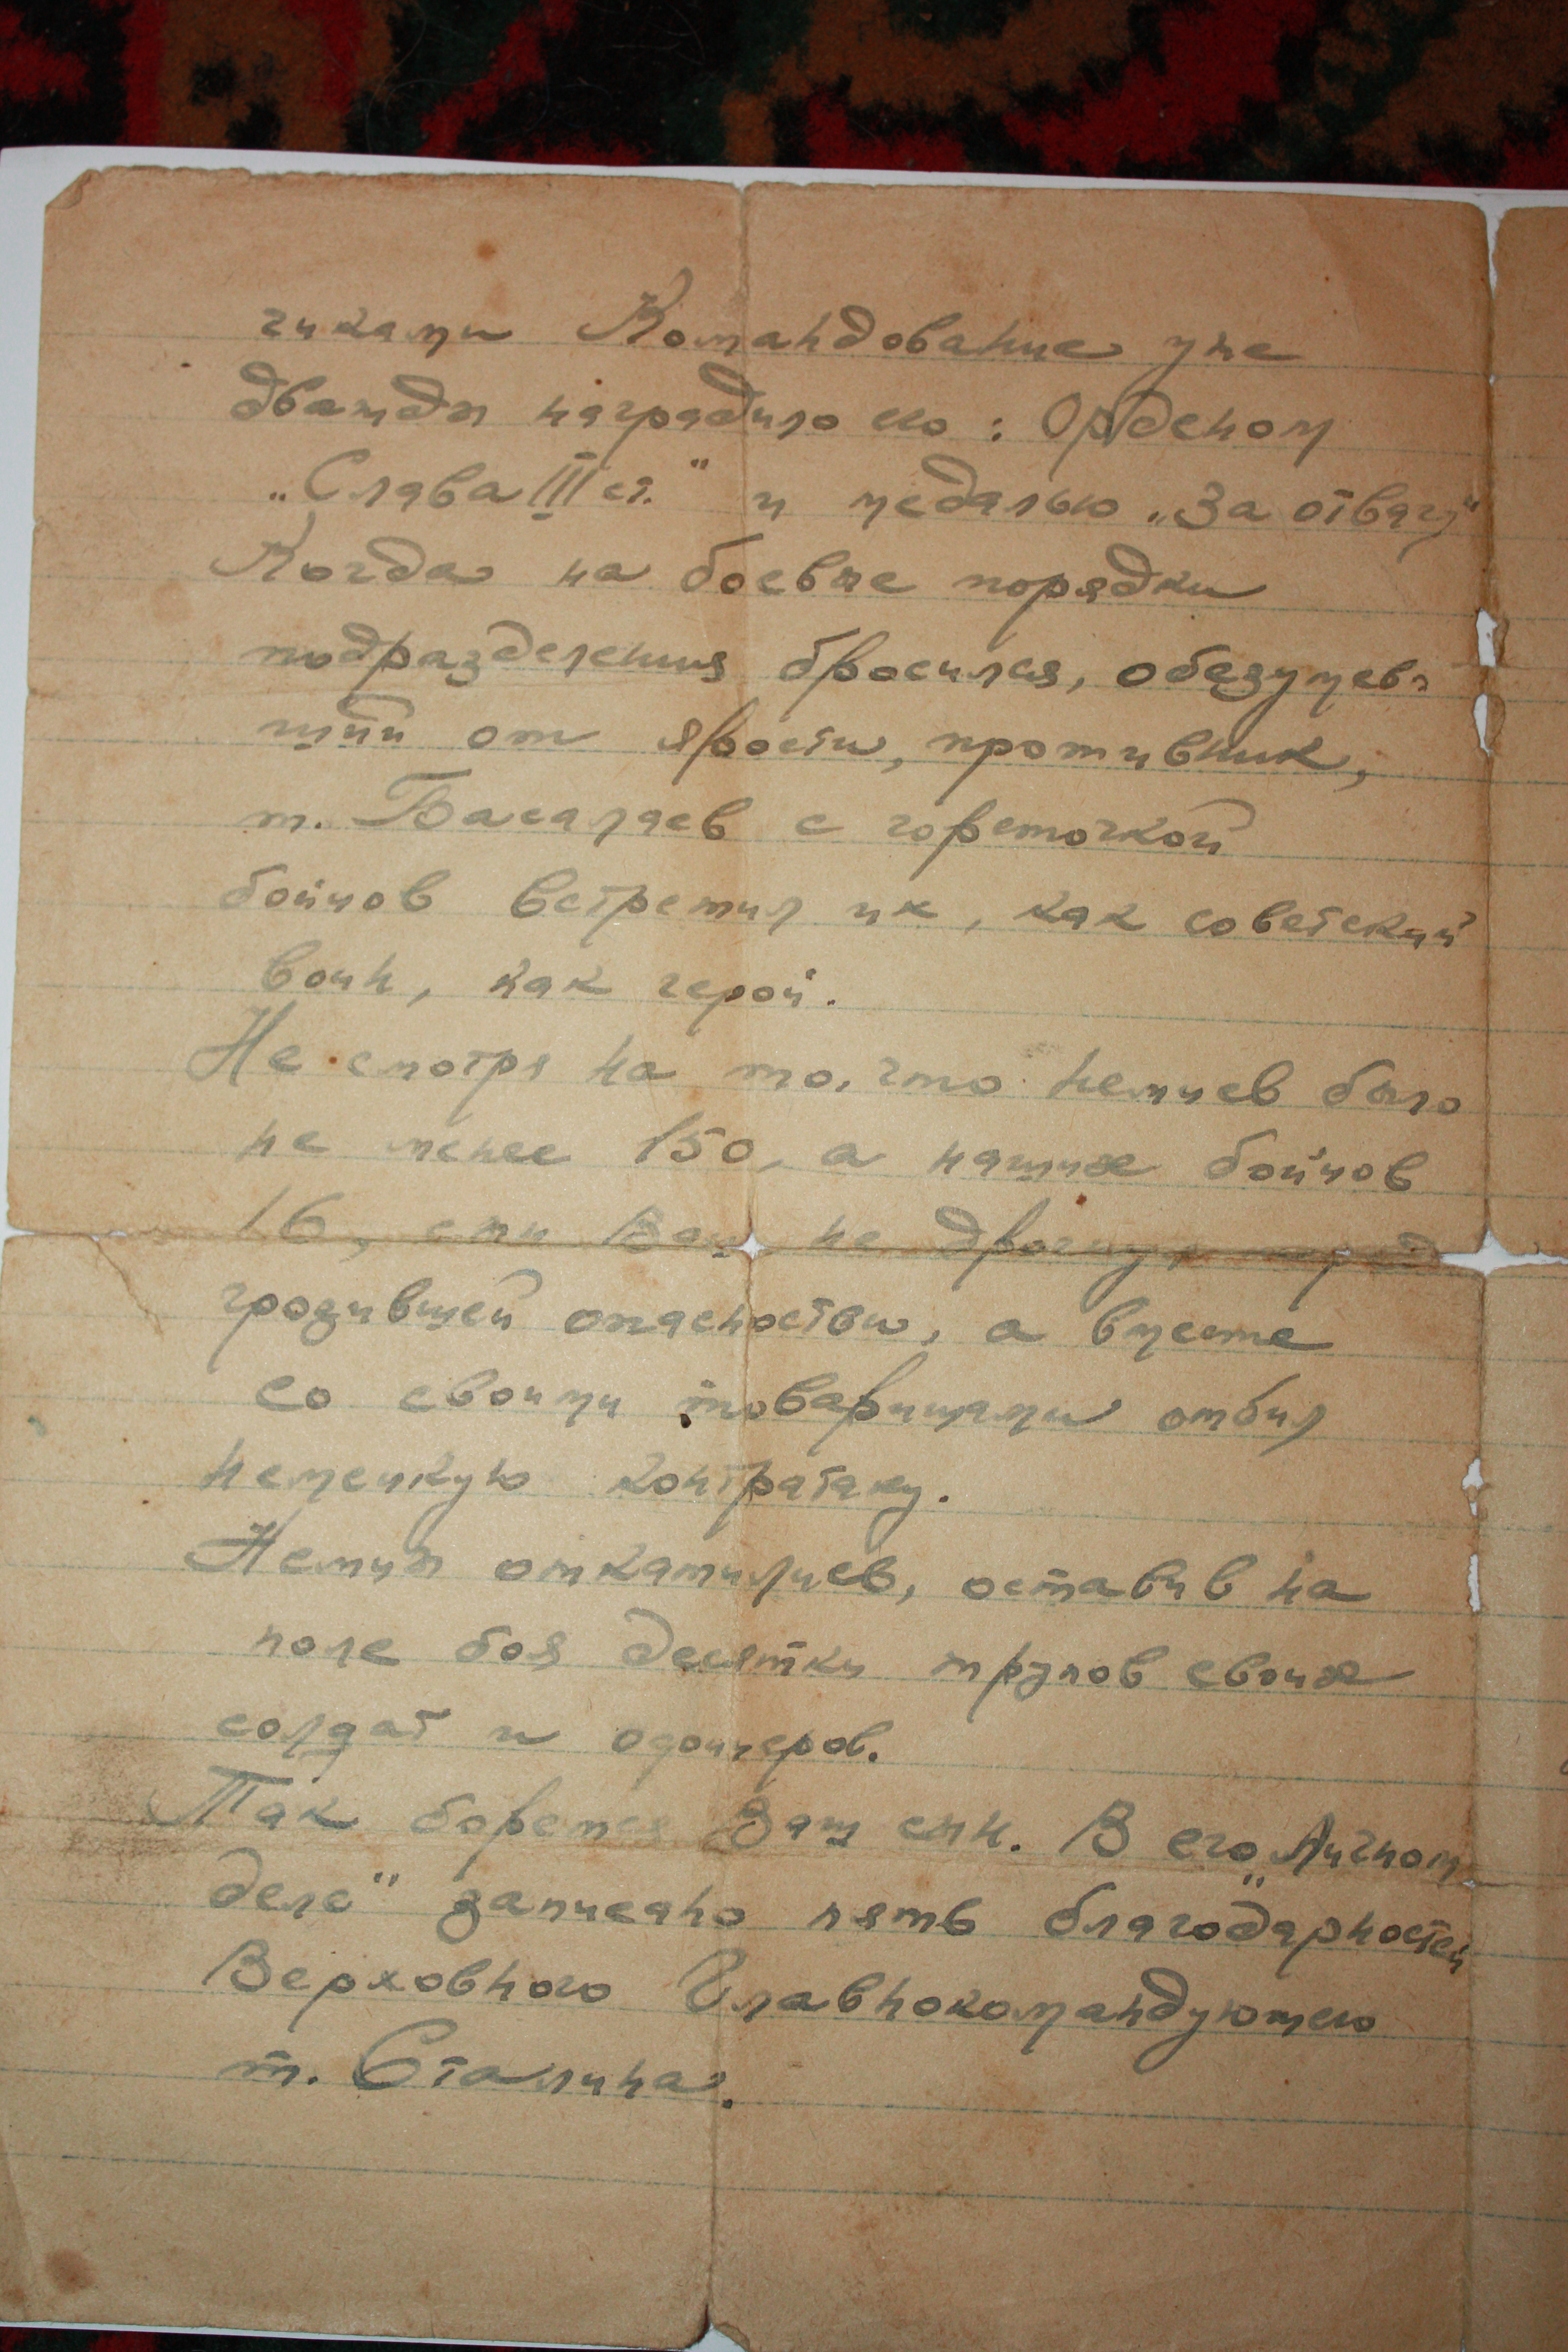 чиками Командование уже
дважды наградило его: Орденом
„Слава III ст." и медалью „За отвагу"
Когда на боевые порядки
подразделения бросился, обезумев-
ший от ярости, противник,
т. Басалаев с горсточкой
бойцов встретил их, как советский
воин, как герой.
Не смотря на то, что немцев было
не менее 150, а наших бойцов
16, сын Ваш не дрогнул перед
грозившей опасностью, а вместе
со своими товарищами отбил
немецкую контратаку.
Немцы откатились, оставив на
поле боя десятки трупов своих
солдат и офицеров.
Так борется Ваш сын. В его „Личном
деле" записано пять благодарностей
Верховного Главнокомандующего
т. Сталина.